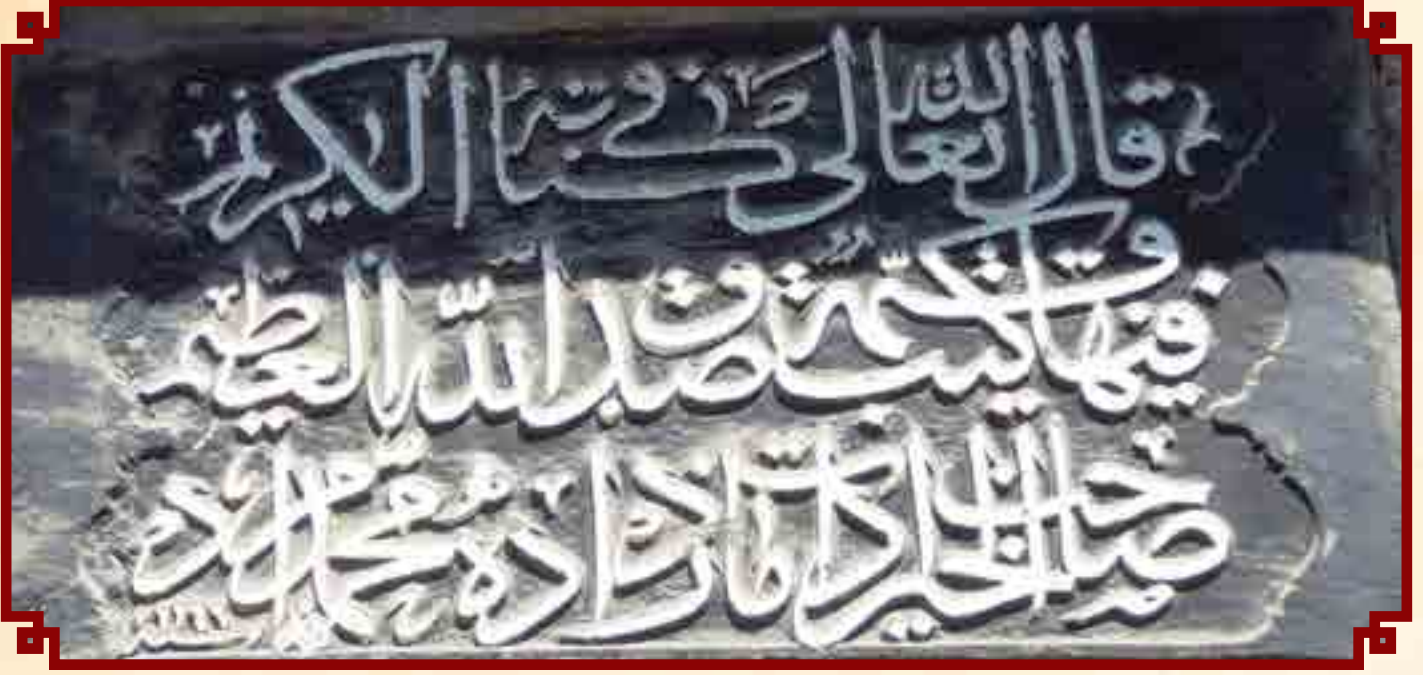 قال الله تعالى في كتابه الكريم
فيها كتب قيمة صدق الله العظيم
صاحب الخير داماد زاده محمد مراد
سنه